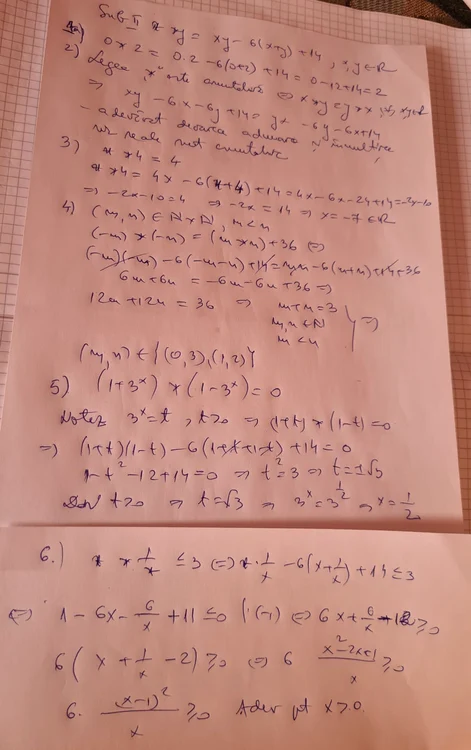 Sub II x * y = xy - 6(x+y) + 14, x,y ∈ R
1a) 0 * 2 = 0·2 - 6(0+2) + 14 = 0 - 12 + 14 = 2
2) Legea "*" este comutativă ⇔ x * y = y * x, ∀ x,y ∈ R
⇒ xy - 6x - 6y + 14 = yx - 6y - 6x + 14
- adevărat deoarece adunarea și înmulțirea
nr reale sunt comutative
3) x * 4 = 4
x * 4 = 4x - 6(x+4) + 14 = 4x - 6x - 24 + 14 = -2x - 10
⇒ -2x - 10 = 4 ⇒ -2x = 14 ⇒ x = -7 ∈ R
4) (m, n) ∈ N × N, m < n
(-m) * (-n) = (m * n) + 36 ⇔
(-m)(-n) - 6(-m-n) + 14 = mn - 6(m+n) + 14 + 36
6m + 6n = -6m - 6n + 36 ⇒
12m + 12n = 36 ⇒ m + n = 3
m, n ∈ N } ⇒
m < n
(m, n) ∈ {(0,3), (1,2)}
5) (1+3^x) * (1-3^x) = 0
Notez 3^x = t, t > 0 ⇒ (1+t) * (1-t) = 0
⇒ (1+t)(1-t) - 6(1+t+1-t) + 14 = 0
1 - t² - 12 + 14 = 0 ⇒ t² = 3 ⇒ t = ±√3
Dar t > 0 ⇒ t = √3 ⇒ 3^x = 3^(1/2) ⇒ x = 1/2
6.) x * 1/x ≤ 3 ⇔ x · 1/x - 6(x + 1/x) + 14 ≤ 3
⇔ 1 - 6x - 6/x + 11 ≤ 0 |·(-1) ⇔ 6x + 6/x - 12 ≥ 0
6(x + 1/x - 2) ≥ 0 ⇔ 6 (x² - 2x + 1)/x ≥ 0
6 · (x-1)²/x ≥ 0 Adev pt x > 0